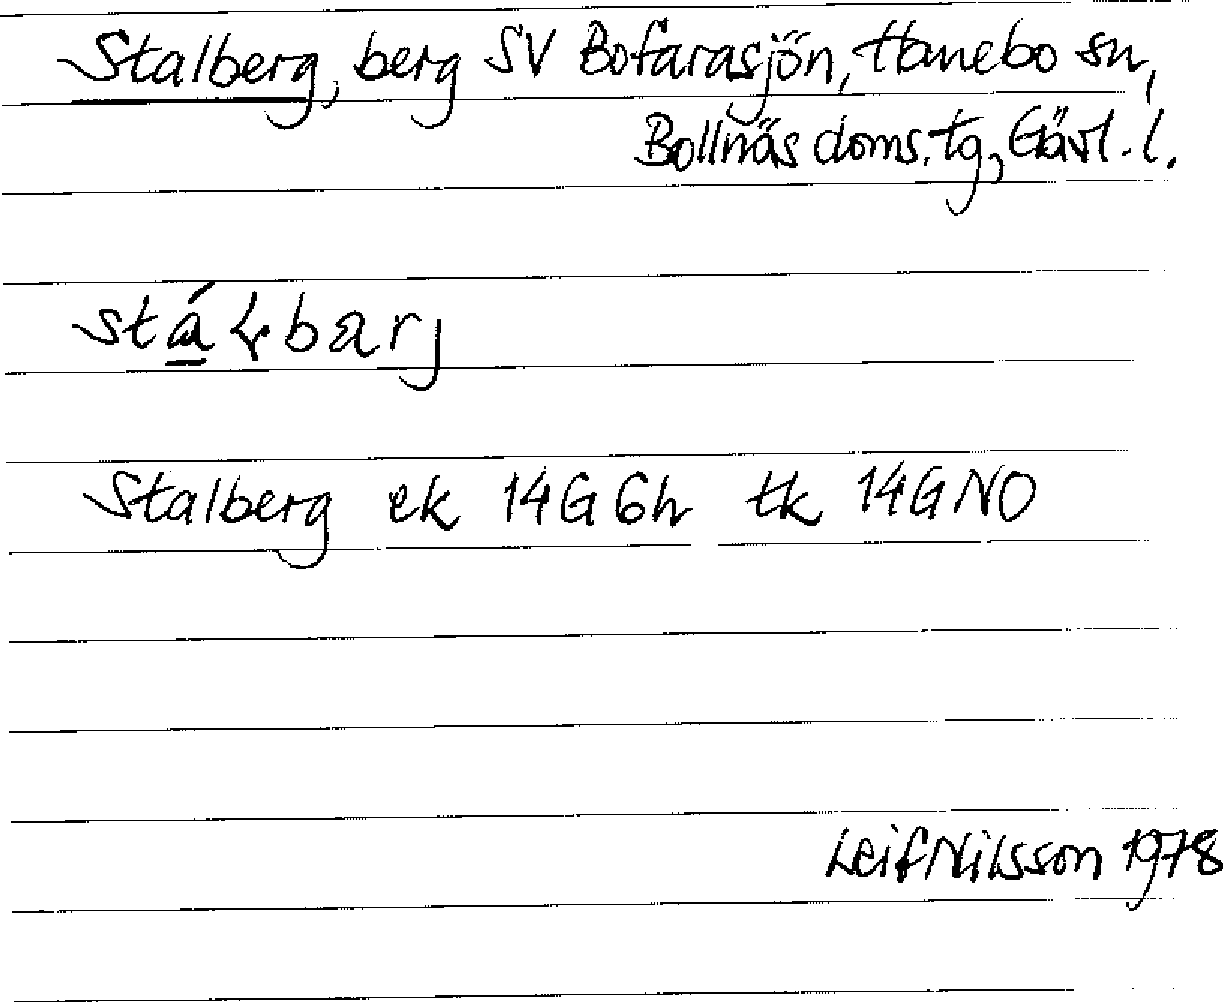 Stalberg, berg SV Bofarasjön, Hanebo sn,
Bollnäs doms.tg, Gävl. l.
Stalberg ek 14G6h tk 14GNO
Leif Nilsson 1978